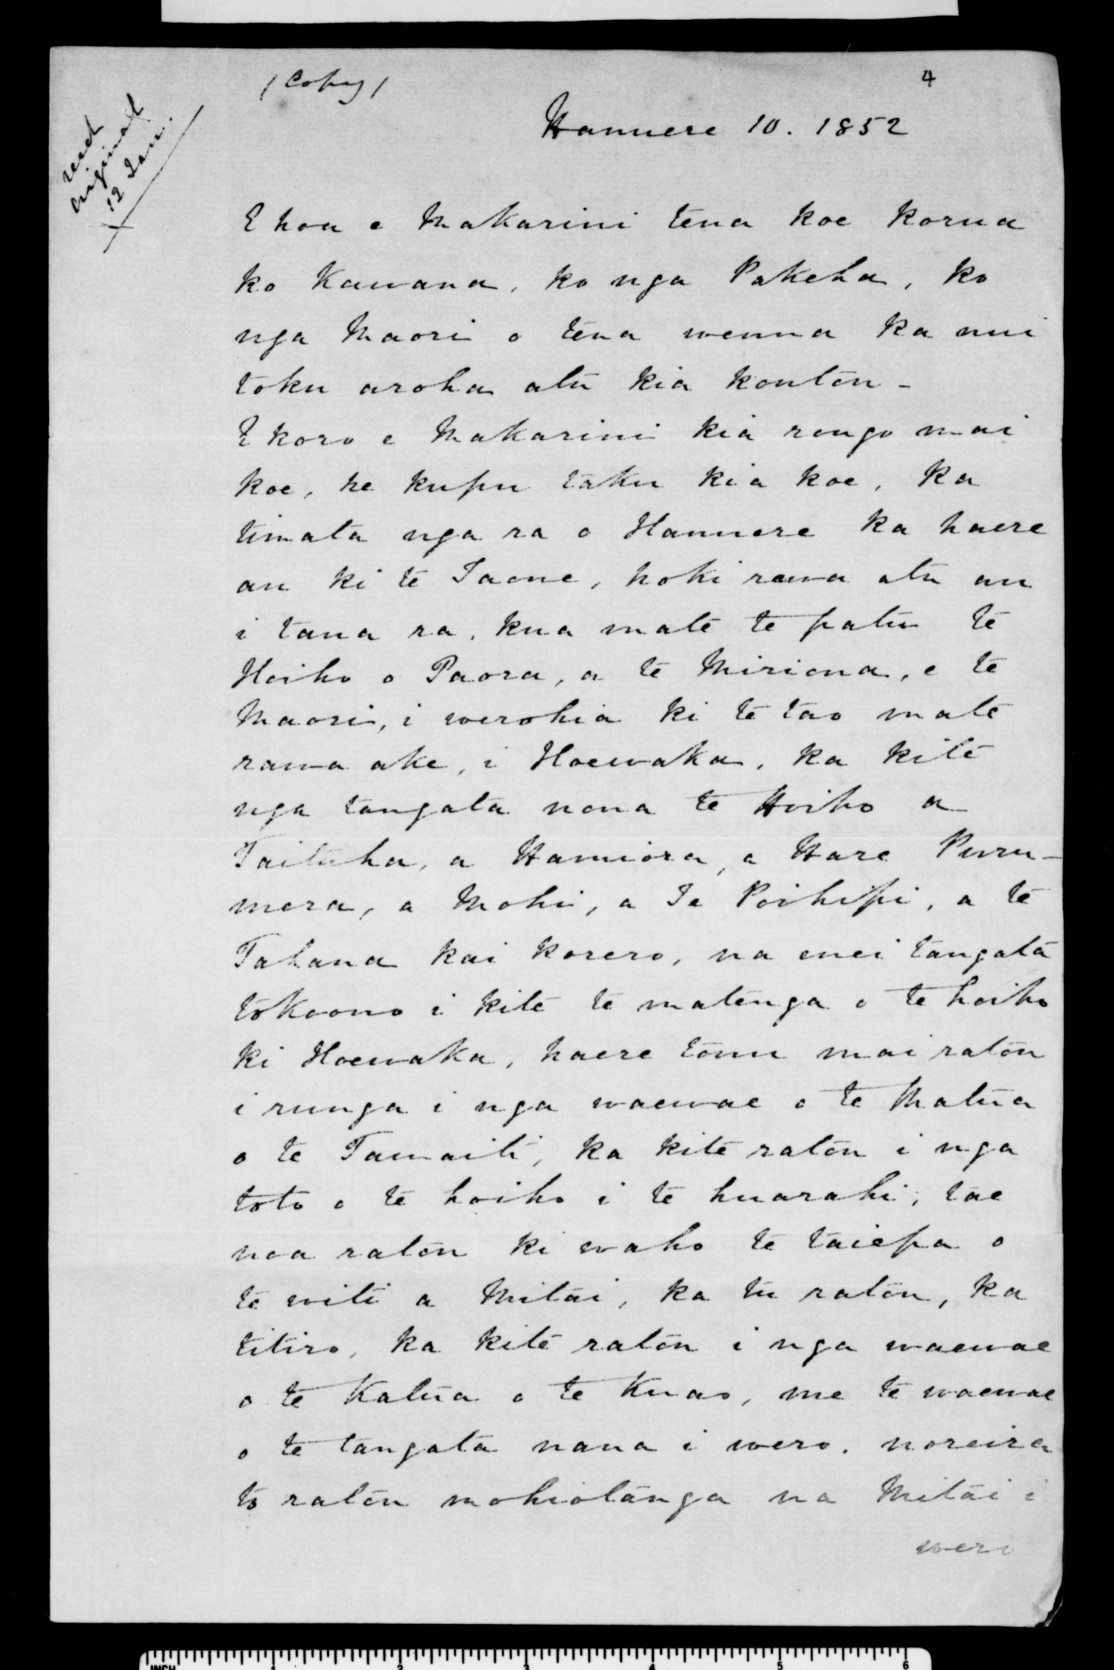 (Copy)
4
recd
original
12 Jan.
Hanuere 10. 1852
E hoa e Makarini tena koe korua
ko Kawana, ko nga Pakeha, ko
nga Maori o tena wenua ka nui
toku aroha atu kia koutou -
E koro e Makarini kia rongo mai
koe, he kupu taku kia koe, Ka
timata nga ra o Hanuere ka haere
au ki te Taone, hoki rawa atu au
i taua ra, kua mate te patu te
Hoiho o Paora, a te Miriona, e te
Maori, i werohia ki te tao mate
rawa ake, i Hoewaka, ka kite
nga tangata nona te Hoiho a
Taituha, a Hamiora, a Hare Puru-
mera, a Mohi, a Te Poihipi, a te
Tahana kai korero, na enei tangata
tokoono i kite te matenga o te hoiho
ki Hoewaka, haere tonu mai ratou
i runga i nga waewae o te Matua
o te Tamaiti, ka kite ratou i nga
toto o te hoiho i te huarahi, tae
noa ratou ki waho te taiepa o
te witi a Mitai, ka tu ratou, ka
titiro, ka kite ratou i nga waewae
o te Katua o te Kuao, me te waewae
o te tangata nana i wero. noreira
to ratou mohiotanga na Mitai i
wero
INCH 1 2 3 4 5 6